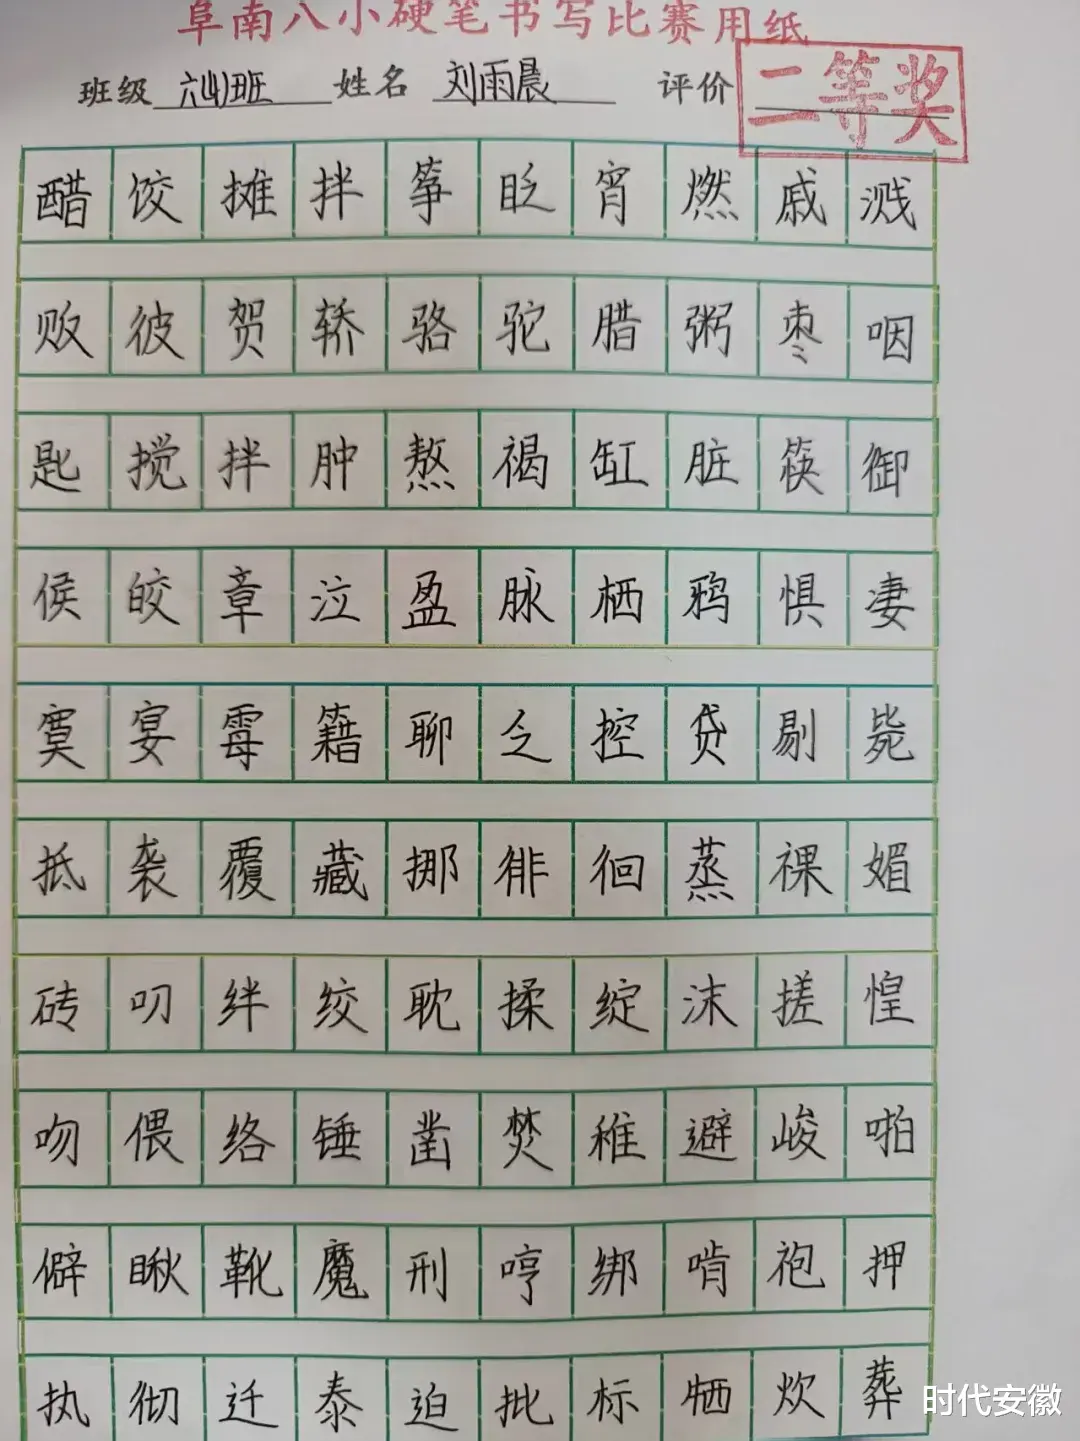 阜南八小硬笔书写比赛用纸
班级 六(4)班 姓名 刘雨晨 评价 二等奖
醋饺摊拌筝眨宵燃戚溅
贩彼贺轿骆驼腊粥枣咽
匙搅拌肿熬褐缸脏筷御
侯皎章泣盈脉栖鸦惧凄
寞宴霉籍聊乏控贷剔毙
抵袭覆藏挪徘徊蒸裸媚
砖叨绊绞耽揉绽沫搓惶
吻偎络锤凿焚稚避峻啪
僻瞅靴魔刑哼绑啃袍押
执彻迁泰迫批标牺炊葬
时代安徽